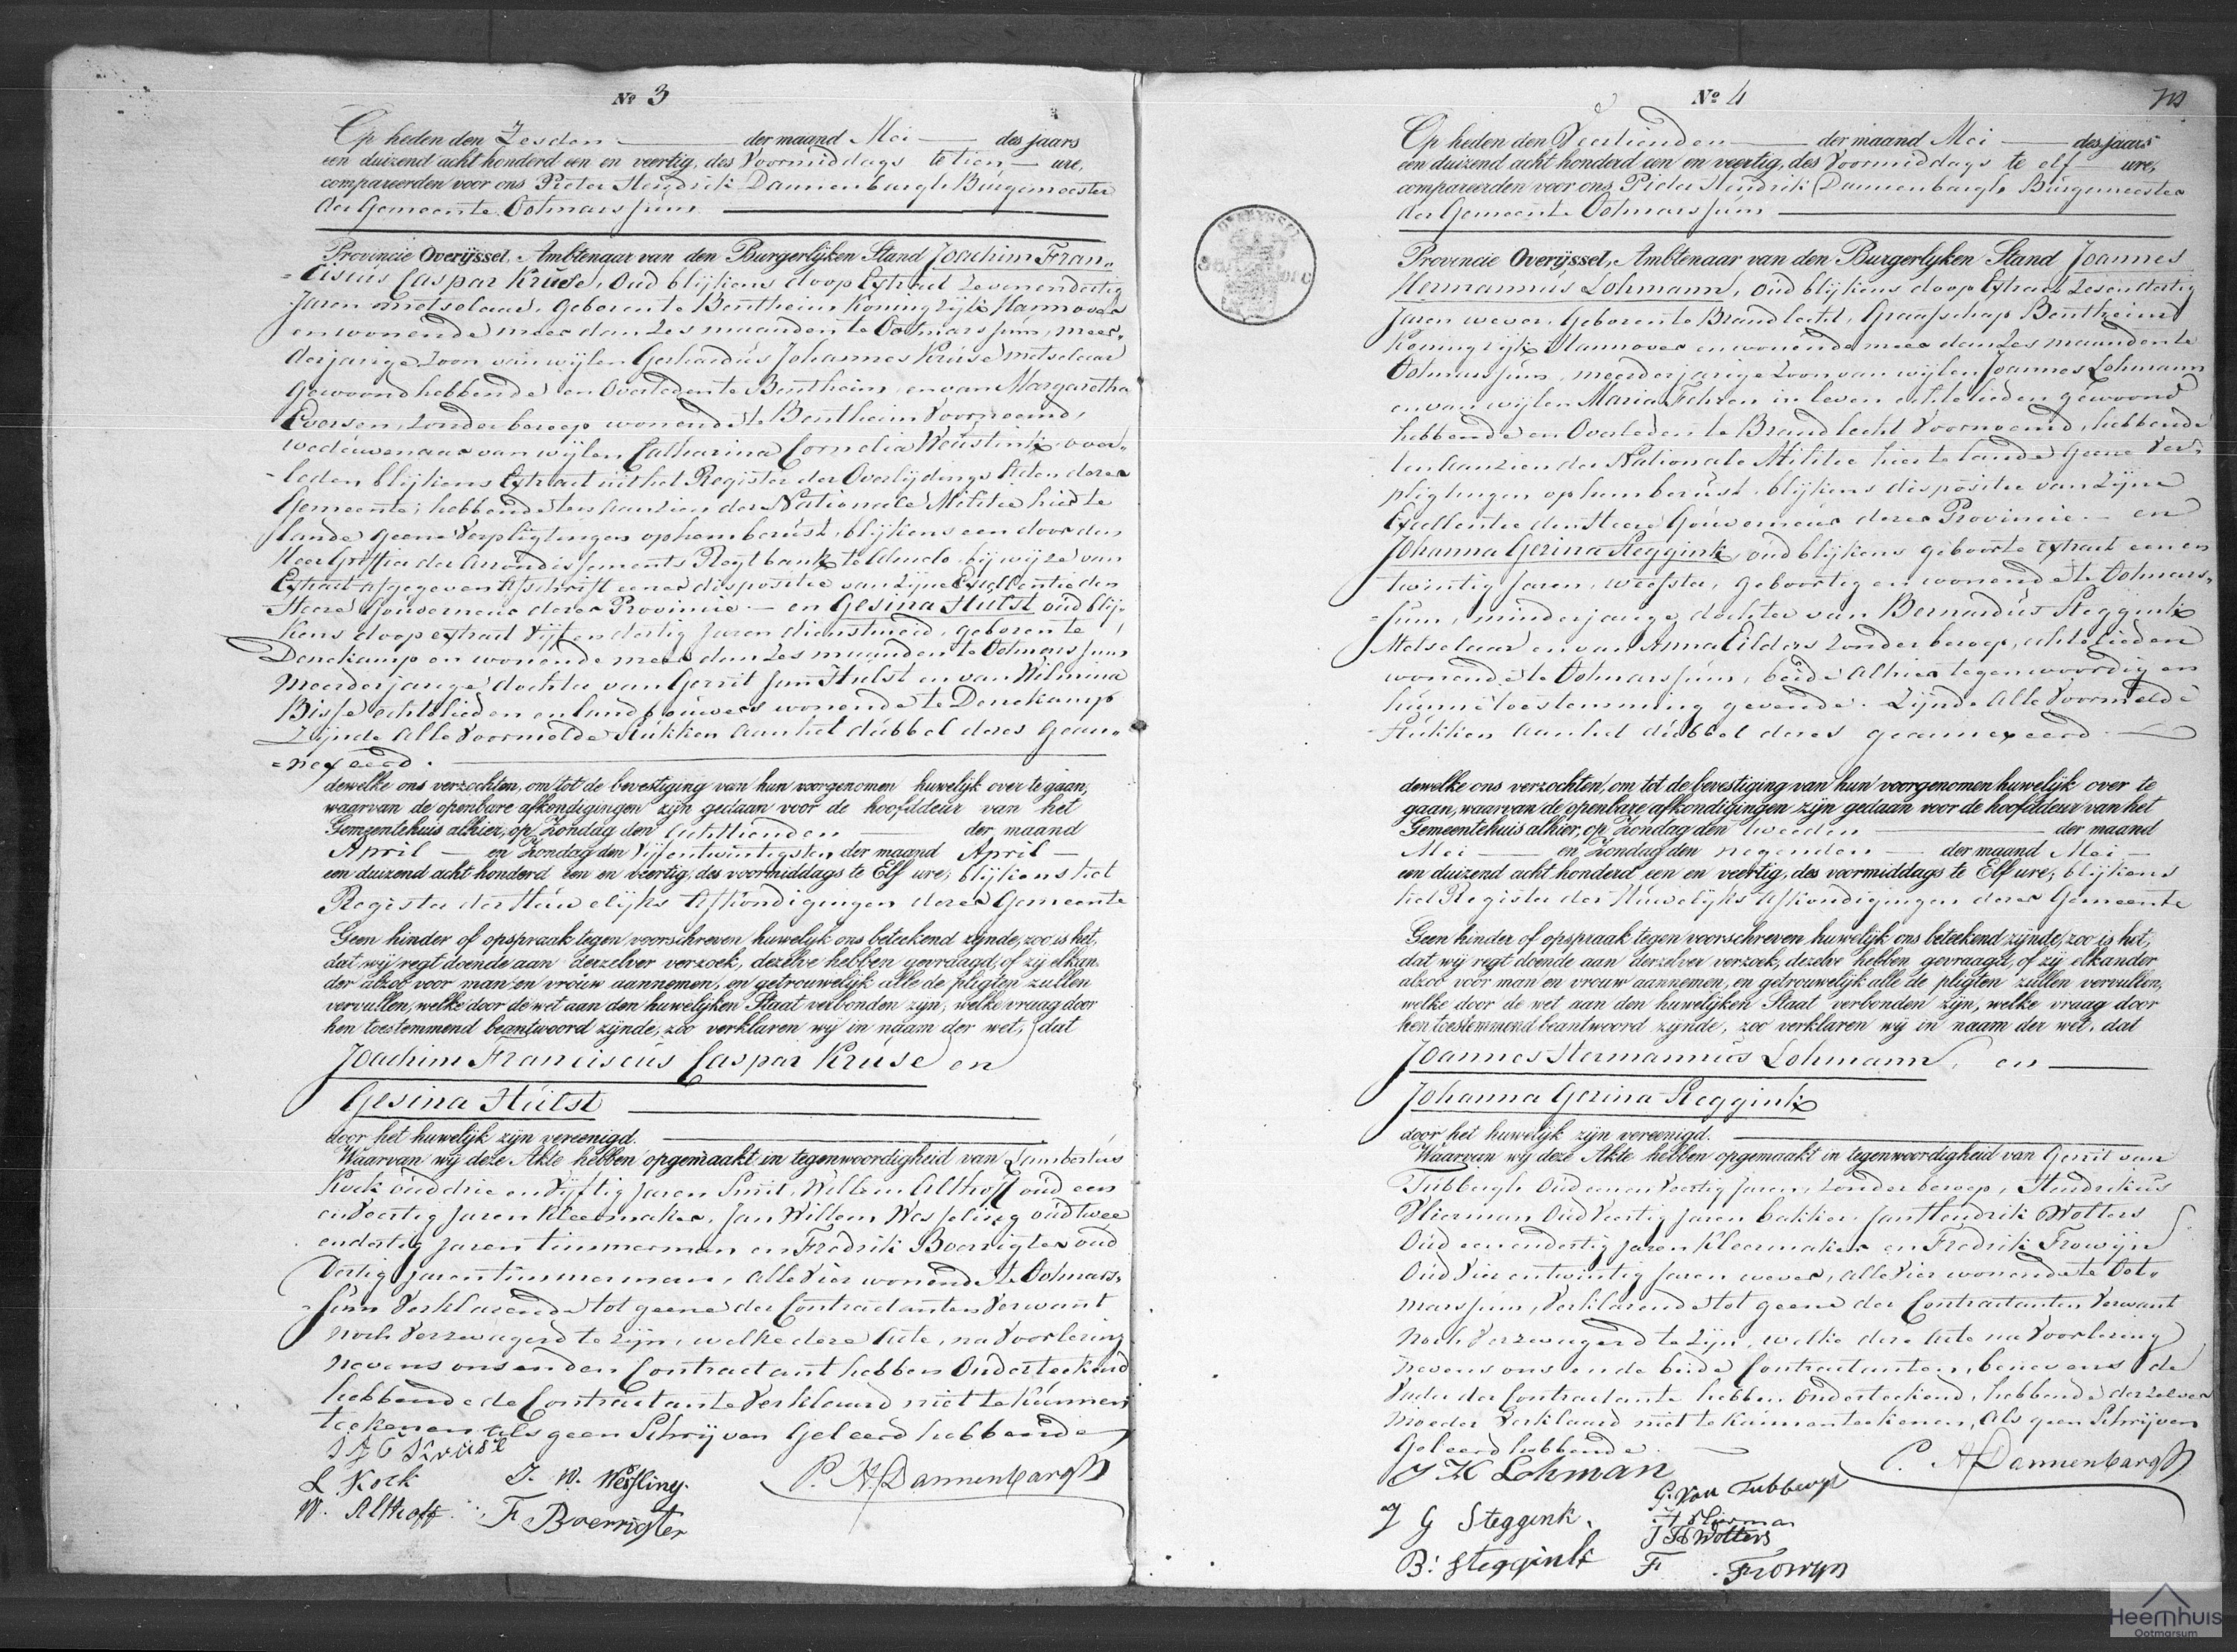 Nº 3
Op heden den Zesden der maand Mei des jaars
een duizend acht honderd een en veertig, des Voormiddags te tien ure,
compareerden voor ons Pieter Hendrik Dannenbargh Burgemeester
der Gemeente Ootmarssum
Provincie Overijssel, Ambtenaar van den Burgerlijken Stand Joachim Fran-
-ciscus Caspar Kruse, oud blijkens doop Extract Zevenendertig
Jaren metselaar, geboren te Bentheim Koningrijk Hannover
en wonende meer dan Zes maanden te Ootmarssum, meer-
derjarige Zoon van wijlen Gerhardus Johannes Kruse metselaar
gewoond hebbende en Overleden te Bentheim, en van Margaretha
Eversen, Zonder beroep wonende te Bentheim Voornoemd,
weduwenaar van wijlen Catharina Cornelia Weustink over-
-leden blijkens Extract uit het Register der Overlijdings Acten dezer
Gemeente; hebbende ten aanzien der Nationale Militie hier te
lande geene Verpligtingen op hem berust, blijkens een door den
Heer Griffier der Arrondissements Regtbank te Almelo bij wijze van
Extract afgegeven Afschrift eener dispositie van Zijne Excellentie den
Heere Gouverneur dezer Provincie. — en Gesina Hulst oud blij-
kens doop extract Vijf en dertig Jaren dienstmeid, geboren te
Denekamp en wonende meer dan Zes maanden te Ootmarssum
Meerderjarige dochter van Gerrit Jan Hulst en van Wilmina
Bisse echtelieden en landbouwers wonende te Denekamp
Zijnde Alle Voormelde Stukken aan het dubbel dezes Gean-
-nexeerd.
dewelke ons verzochten, om tot de bevestiging van hun voorgenomen huwelijk over te gaan,
waarvan de openbare afkondigingen zijn gedaan voor de hoofddeur van het
Gemeentehuis alhier, op Zondag den Achttienden der maand
April en Zondag den Vijfentwintigsten der maand April
een duizend acht honderd een en veertig, des voormiddags te Elf ure; blijkens het
Register der Huwelijks Afkondigingen dezer Gemeente
Geen hinder of opspraak tegen voorschreven huwelijk ons beteekend zijnde, zoo is het,
dat wij regt doende aan derzelver verzoek, dezelve hebben gevraagd, of zij elkan-
der alzoo voor man en vrouw aannemen, en getrouwelijk alle de pligten zullen
vervullen, welke door de wet aan den huwelijken Staat verbonden zijn; welke vraag door
hen toestemmend beantwoord zijnde, zoo verklaren wij in naam der wet, dat
Joachim Franciscus Caspar Kruse en
Gesina Hulst
door het huwelijk zijn vereenigd.
Waarvan wij deze Akte hebben opgemaakt in tegenwoordigheid van Lambertus
Kock oud drie en Vijftig Jaren Smit, Willem Althoff oud een
en Veertig Jaren Kleermaker, Jan Willem Wesseling oud twee
en dertig Jaren timmerman en Fredrik Boerrigter oud
Dertig Jaren timmerman, alle Vier wonende te Ootmars-
-sum Verklarende tot geene der Contractanten Verwant
noch Verzwagerd te Zijn, welke deze Acte, na Voorlezing
nevens ons en den Contractant hebben Onderteekend
hebbende de Contractante Verklaard niet te kunnen
teekenen als geen Schrijven Geleerd hebbende
J F C Kruse
L Kock J. W. Wessling. P. H. Dannenbargh
W. Althoff F Boerrigter
Nº 4
Op heden den Veertienden der maand Mei des jaars
een duizend acht honderd een en veertig, des Voormiddags te elf ure,
compareerden voor ons Pieter Hendrik Dannenbargh Burgemeester
der Gemeente Ootmarssum
Provincie Overijssel, Ambtenaar van den Burgerlijken Stand Joannes
Hermannus Lohmann, oud blijkens doop Extract Zesendertig
Jaren wever, Geboren te Brandlecht, Graafschap Bentheim
Koningrijk Hannover en wonende meer dan Zes maanden te
Ootmarssum, meerderjarige Zoon van wijlen Joannes Lohmann
en van wijlen Maria Fehren in leven echtelieden gewoond
hebbende en Overleden te Brandlecht Voornoemd, hebbende
ten aanzien der Nationale Militie hier te lande Geene Ver-
pligtingen op hem berust, blijkens dispositie van Zijne
Excellentie den Heere Gouverneur dezer Provincie. — en
Johanna Gezina Steggink, oud blijkens geboorte extract een en
twintig Jaren, weefster, geboortig en wonende te Ootmars-
-sum, minderjarige dochter van Bernardus Steggink
Metselaar en van Anna Eilders Zonder beroep, echtelieden
wonende te Ootmarssum, beide Alhier tegenwoordig en
hunne toestemming gevende. Zijnde Alle Voormelde
Stukken aan het dubbel dezes geannexeerd.
dewelke ons verzochten, om tot de bevestiging van hun voorgenomen huwelijk over te
gaan, waarvan de openbare afkondigingen zijn gedaan voor de hoofddeur van het
Gemeentehuis alhier, op Zondag den tweeden der maand
Mei en Zondag den negenden der maand Mei
een duizend acht honderd een en veertig, des voormiddags te Elf ure; blijkens
het Register der Huwelijks Afkondigingen dezer Gemeente
Geen hinder of opspraak tegen voorschreven huwelijk ons beteekend zijnde, zoo is het,
dat wij regt doende aan derzelver verzoek, dezelve hebben gevraagd, of zij elkander
alzoo voor man en vrouw aannemen, en getrouwelijk alle de pligten zullen vervullen,
welke door de wet aan den huwelijken Staat verbonden zijn, welke vraag door
hen toestemmend beantwoord zijnde, zoo verklaren wij in naam der wet, dat
Joannes Hermannus Lohmann, en
Johanna Gezina Steggink
door het huwelijk zijn vereenigd.
Waarvan wij deze Akte hebben opgemaakt in tegenwoordigheid van Gerrit van
Tubbergh Oud een en Veertig Jaren, Zonder beroep, Hendrikus
Hierman Oud Veertig Jaren bakker, Jan Hendrik Wolters
Oud een en dertig Jaren Kleermaker en Fredrik Frowijn
Oud Vier en twintig Jaren wever, alle Vier wonende te Oot-
marssum, Verklarende tot geene der Contractanten Verwant
noch Verzwagerd te Zijn, welke deze Acte na Voorlezing
nevens ons en de beide Contractanten, benevens de
Vader der Contractante hebben Onderteekend, hebbende derzelver
moeder Verklaard niet te kunnen teekenen, Als geen Schrijven
Geleerd hebbende.
J H Lohman P. H Dannenbargh
G. van Tubbergh
J G Steggink. J H Wolters
B: Steggink F Frowijn
OVERIJSSEL
Heemhuis
Ootmarsum